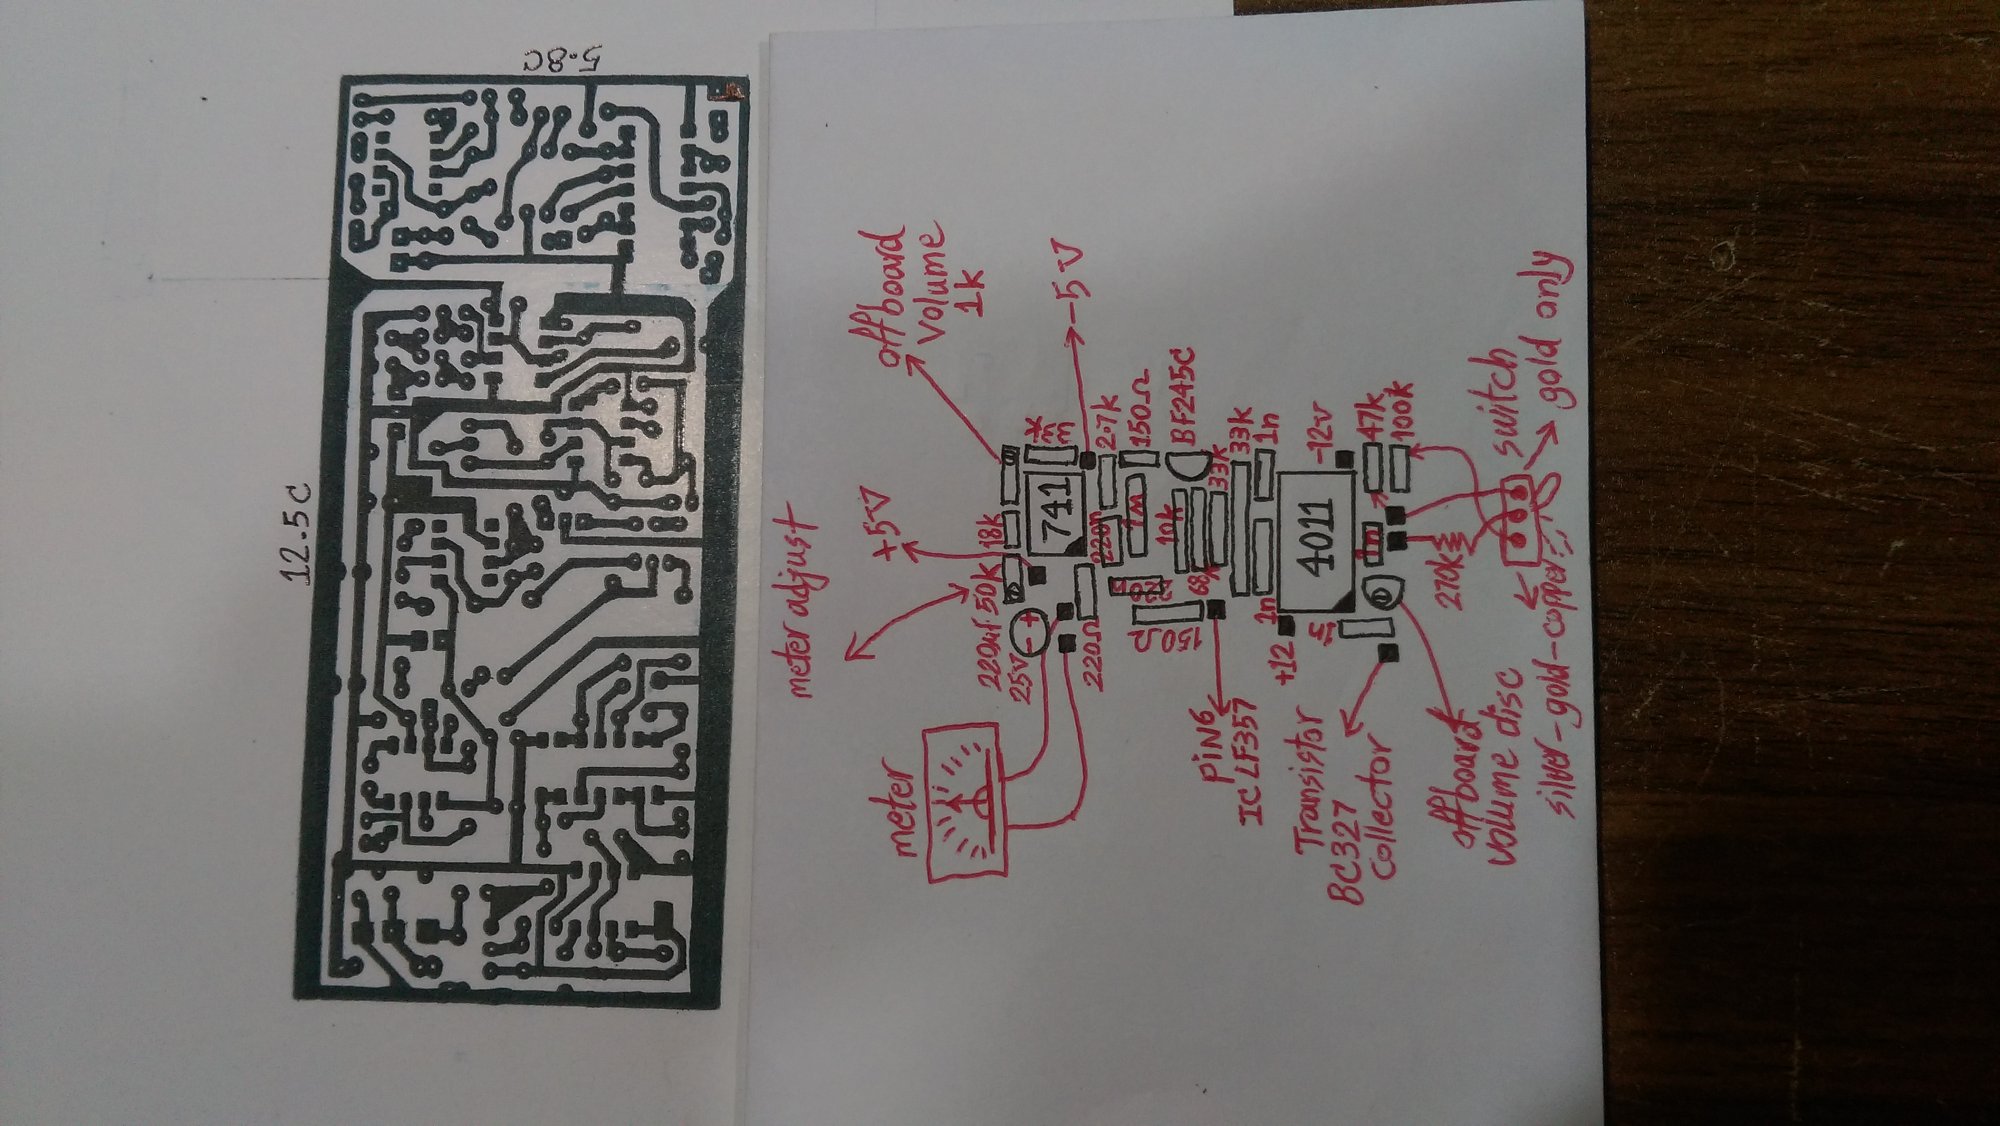 5.8C
12.5C
meter adjust
+5V
offboard
volume
1k
-5V
220uf
25V
50k
18k
741
1k
220Ω
220n
2.7k
150Ω
1m
BF245C
10k
33k
33k
68k
150
1n
1n
4011
+12
-12v
47k
100k
1m
270k
meter
PiN6
IC LF357
Transistor
BC327
Collector
offboard
volume disc
switch
silver-gold-copper
gold only